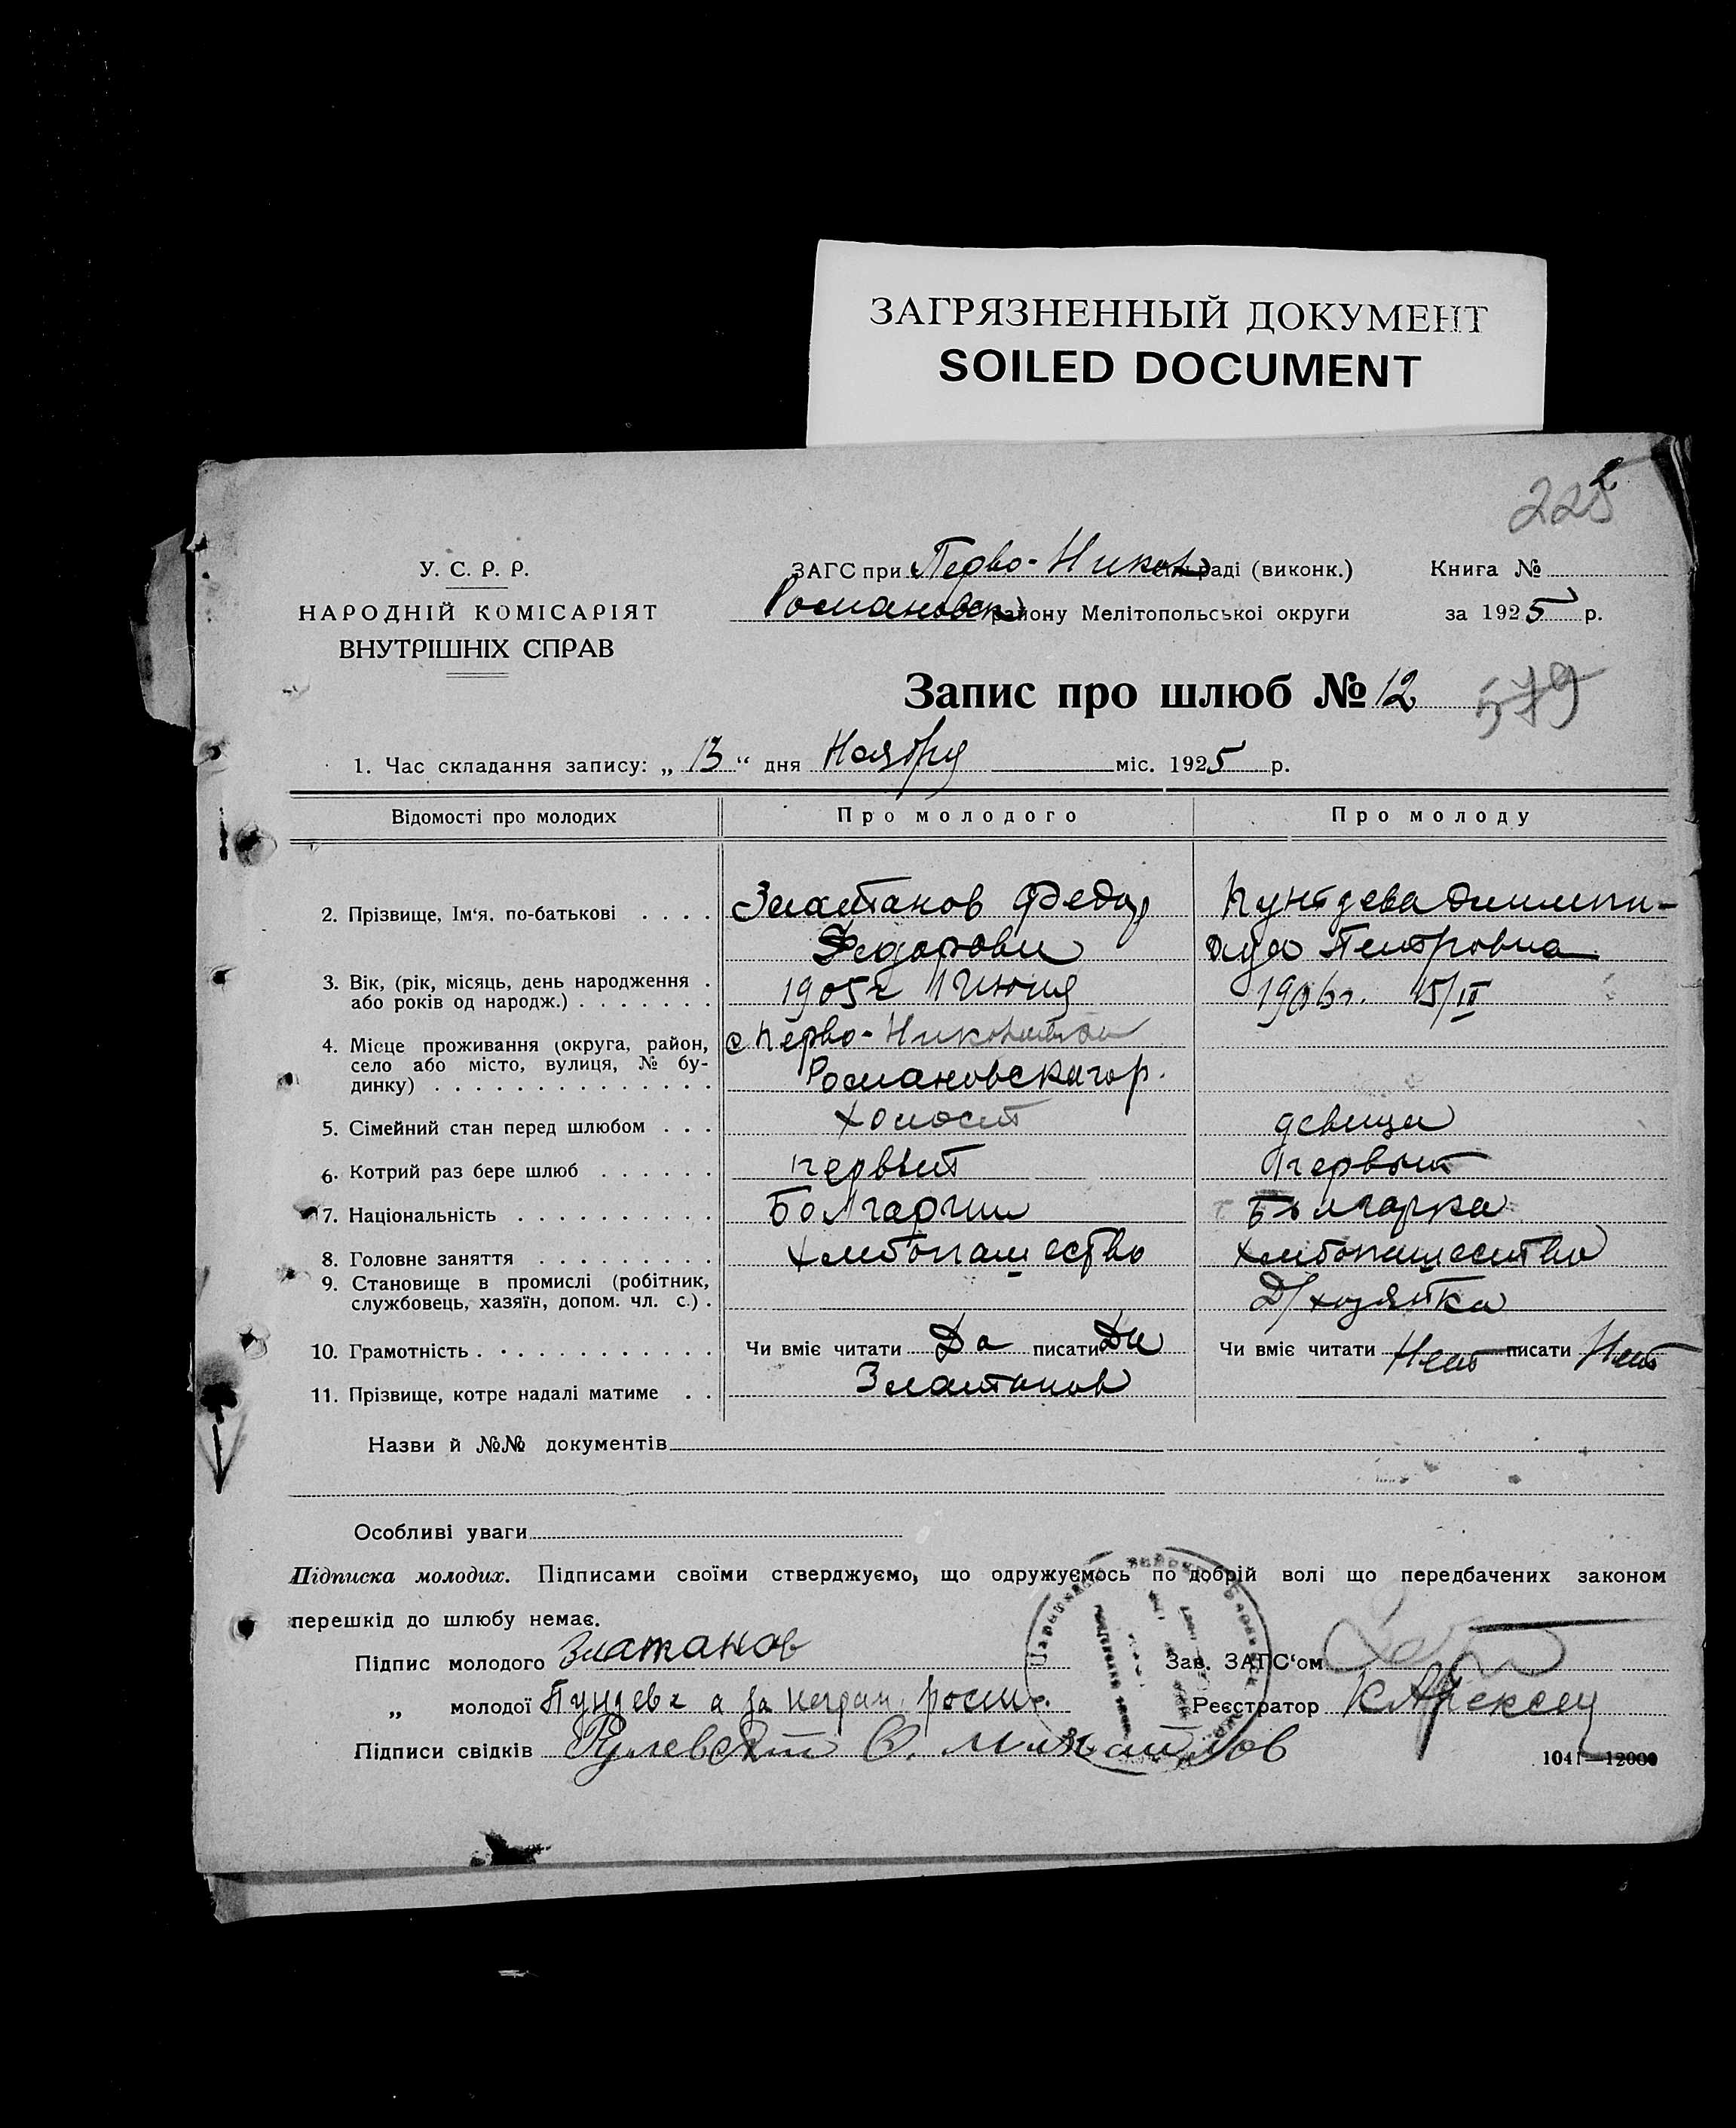 ЗАГРЯЗНЕННЫЙ ДОКУМЕНТ
SOILED DOCUMENT
225
У. С. Р. Р.
НАРОДНІЙ КОМІСАРІЯТ
ВНУТРІШНІХ СПРАВ
ЗАГС при Перво-Никол раді (виконк.)
Романовск району Мелітопольської округи
Книга №
за 1925 р.
Запис про шлюб № 12
579
1. Час складання запису: „ 13 “ дня Ноября міс. 1925 р.
Відомості про молодих Про молодого Про молоду
2. Прізвище, Ім‘я, по-батькові . . . . Златанов Федор Пундева Димит-
Федорович Петровна
3. Вік, (рік, місяць, день народження . 1905 г 1 Июня 1906 г. 15/II
або років од народж.) . . . . . . .
4. Місце проживання (округа, район, с Перво-
село або місто, вулиця, № бу- Романовскаго р.
динку) . . . . . . . . . . . . . .
5. Сімейний стан перед шлюбом . . . холост девица
6. Котрий раз бере шлюб . . . . . . первый первый
7. Національність . . . . . . . . . . Болгарин Болгарка
8. Головне заняття . . . . . . . . . хлебопашество хлебопашество
9. Становище в промислі (робітник, Д/хозяйка
службовець, хазяїн, допом. чл. с.) .
10. Грамотність . . . . . . . . . . . . Чи вміє читати Да писати Да Чи вміє читати Нет писати Нет
11. Прізвище, котре надалі матиме . . Златанов
Назви й №№ документів
Особливі уваги
Підписка молодих. Підписами своїми стверджуємо, що одружуємось по добрій волі що передбачених законом
перешкід до шлюбу немає.
Підпис молодого Златанов Зав. ЗАГС‘ом
„ молодої Пундева а за негр. Реєстратор
Підписи свідків
1041—12000